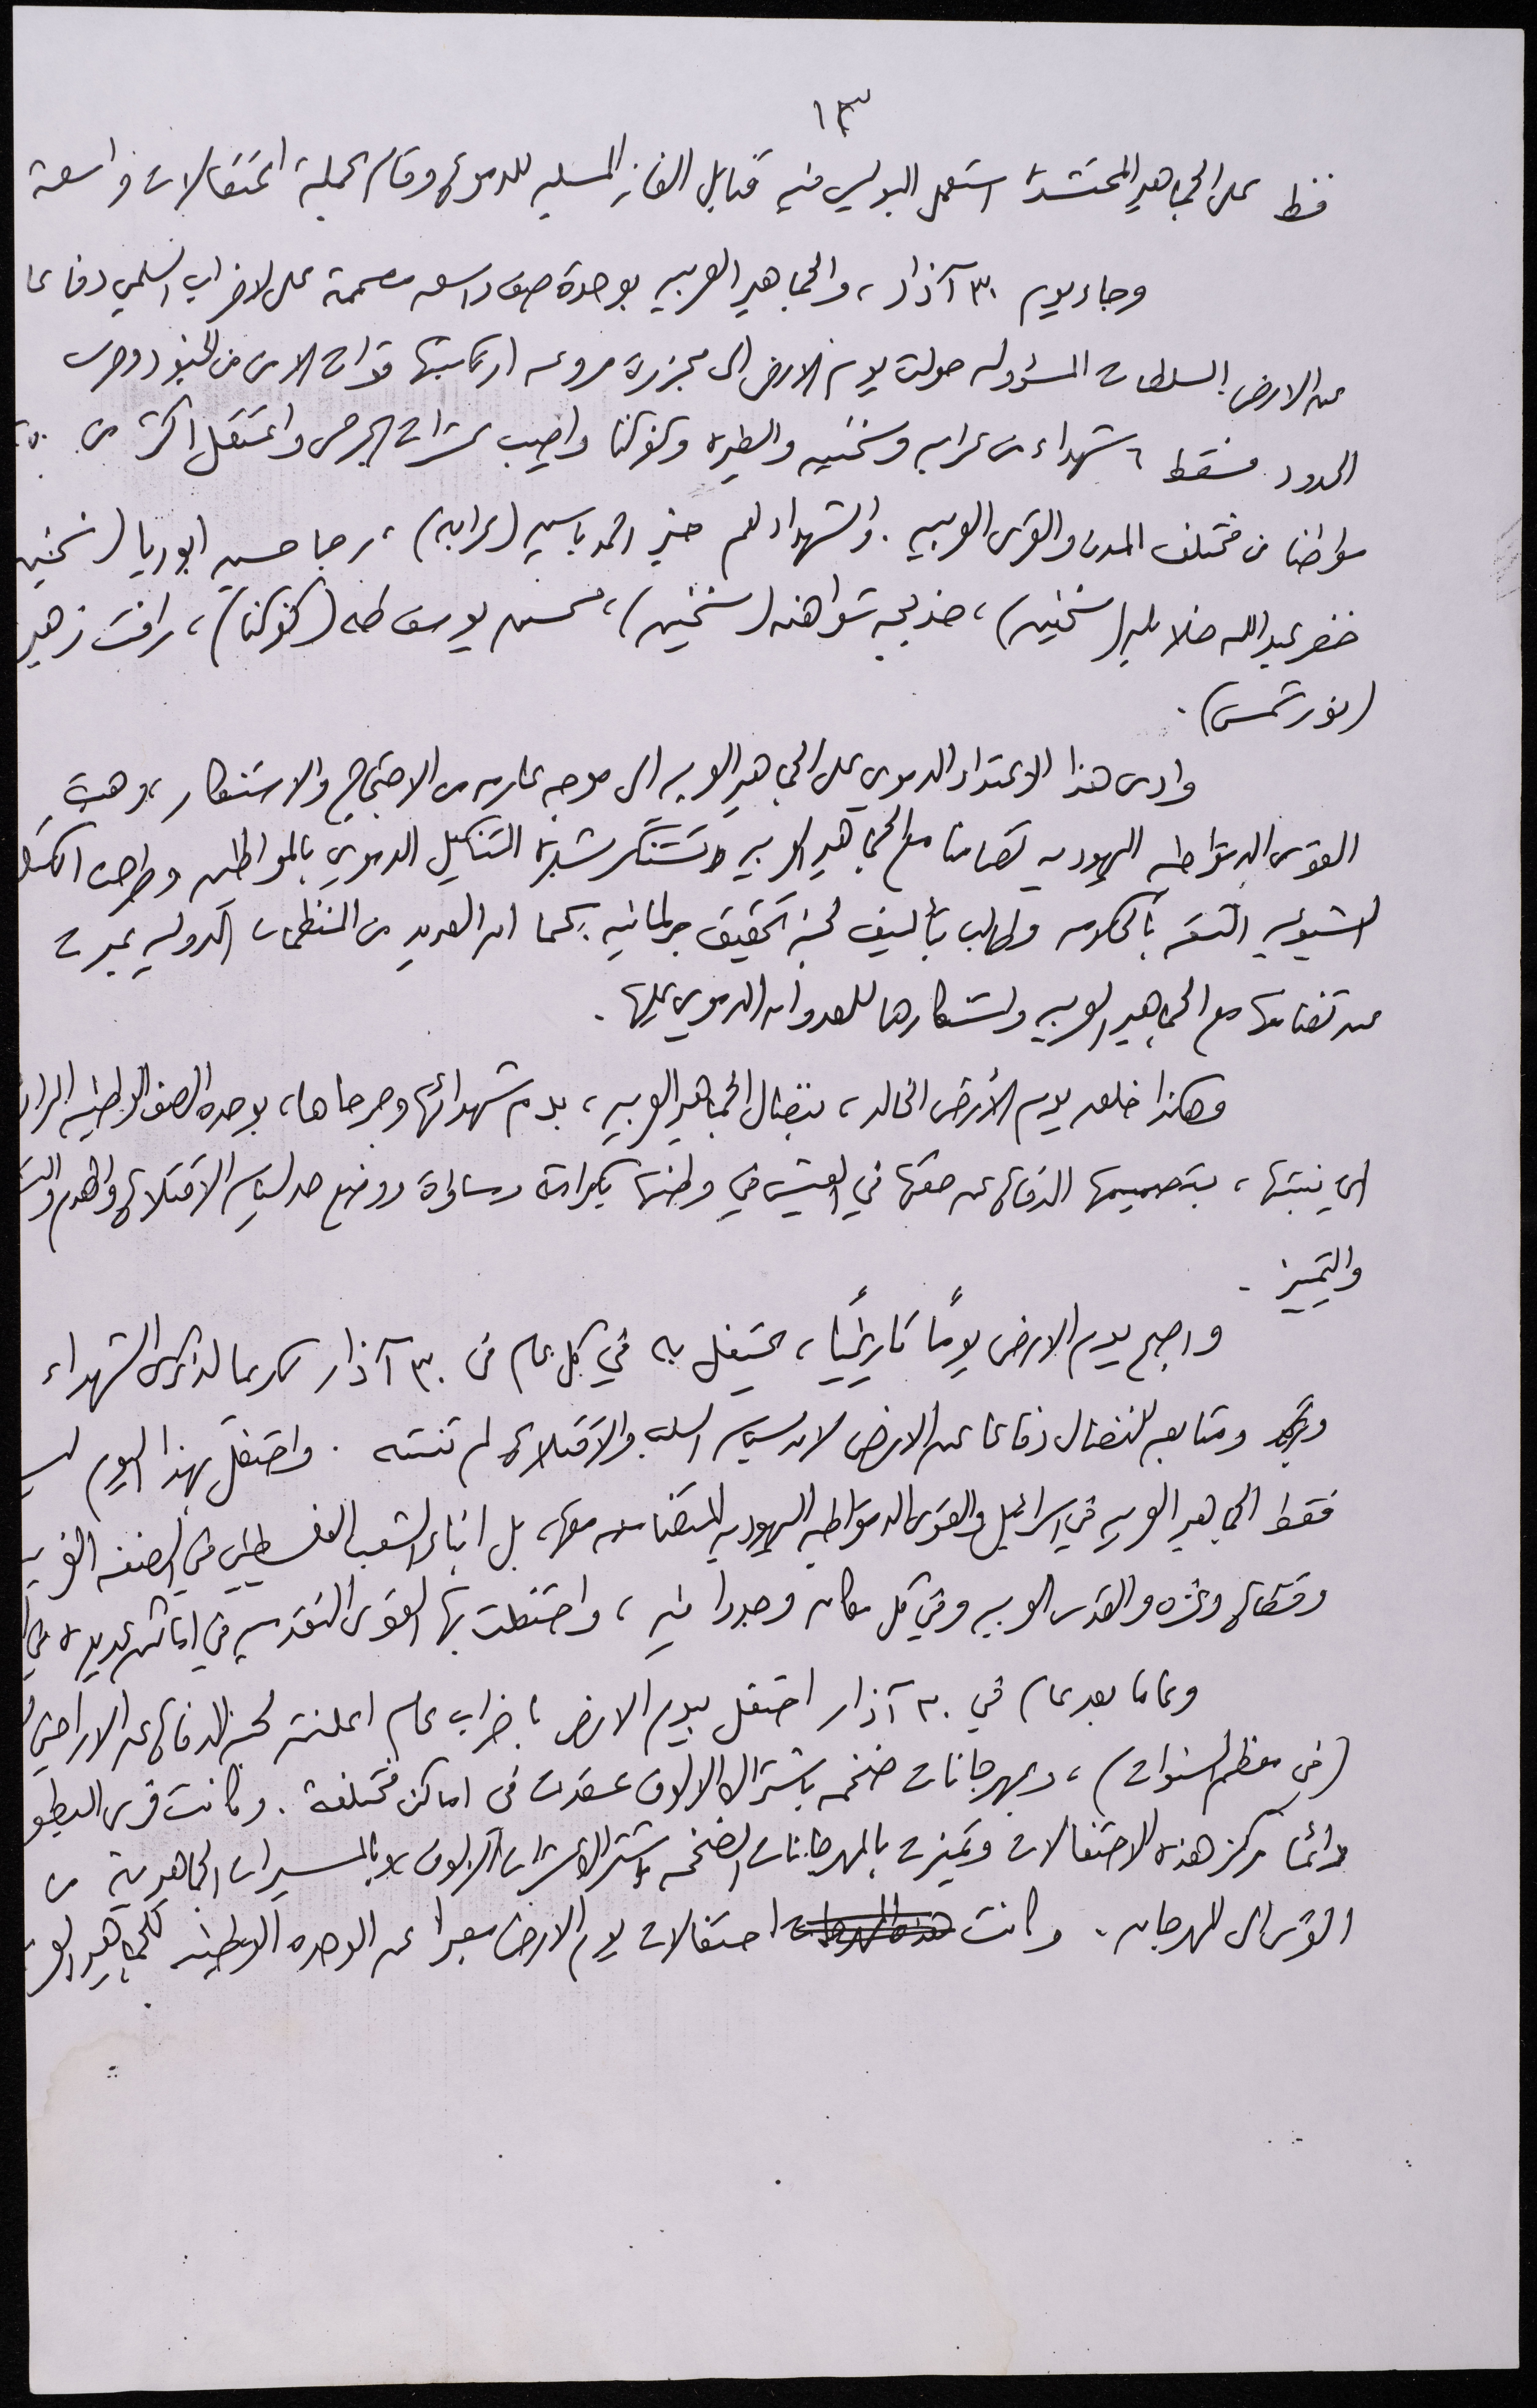 ١٣
فظ على الجماهير المحتشدة استعمل البوليس فيه قنابل الغاز المسيله للدموع وقام بحملة اعتقالات واسعة
وجاء يوم ٣٠ آذار، والجماهير العربيه بوحدة صف واسعه مصممة على الاضراب السلمي دفاعا
عن الارض. السلطات المسؤوله حولت يوم الارض الى مجزرة مروعه ارتكبتها قوات الامن من الجنود وحرس
الحدود فسقط ٦ شهداء من عرابه وسخنين والطيره وكفركنا واصيب عشرات الجرحى واعتقل اكثر من
مواطنا من مختلف المدن والقرى العربيه. والشهداء هم خير احمد ياسين (عرابه)، رجا حسين ابوريا (سخنين
خضر عبدالله خلايله (سخنين)، خديجه شواهنه (سخنين)، محسن يوسف طه (كفركنا)، رافت زهير
(نور شمس).
وادى هذا الاعتداء الدموي على الجماهير العربيه الى موجه عارمه من الاحتجاج والاستنكار، وهبت
القوى الديمقراطيه اليهوديه تضامنا مع الجماهير العربيه وتستنكر بشدة التنكيل الدموي بالمواطنين وطرحت الكتلة
الشيوعيه الثقه بالحكومه وطالب بتأليف لجنة تحقيق برلمانيه. كما ان العديد من المنظمات الدوليه عبرت
عن تضامنها مع الجماهير العربيه واستنكارها للعدوان الدموي عليها.
وهكذا خلد يوم الأرض الخالد، بنضال الجماهير العربيه، بدم شهدائها وجرحاها، بوحدة الصف الوطنيه
التي بنتها، بتصميمها الدفاع عن حقها في العيش في وطنها بكرامة ومساواة ووضع حد لسياسة الاقتلاع والهدم
والتمييز.
واصبح يوم الارض يومًا تاريخيًا، يحتفل به في كل عام في ٣٠ آذار تكريما لذكرى الشهداء
ومتابعه للنضال دفاعا عن الارض لان سياسة السلب والاقتلاع لم تنته. واحتفل بهذا اليوم ليس
فقط الجماهير العربيه في اسرائيل والقوى الديمقراطيه اليهوديه المتضامنه معها، بل ابناء الشعب الفلسطيني في الضفه الغربيه
وقطاع وغزه والقدس العربيه وفي كل مكان وجدوا فيه، واحتفلت بها القوى التقدميه في اماكن عديده في
وعاما بعد عام في ٣٠ آذار احتفل بيوم الارض باضراب عام اعلنته لجنة الدفاع عن الاراضي
(في معظم السنوات)، وبمهرجانات ضخمه باشتراك الالوف عقدت في اماكن مختلفة. وكانت قرى البطوف
دائما مركز هذه الاحتفالات وتميزت بالمهرجانات الضخمه باشتراك عشرات الالوف وبالمسيرات الجماهيرية من
القرى الى المهرجان. وكانت هذه المهرجانات احتفالات يوم الارض معبرا عن الوحده الوطنيه للجماهير العربيه